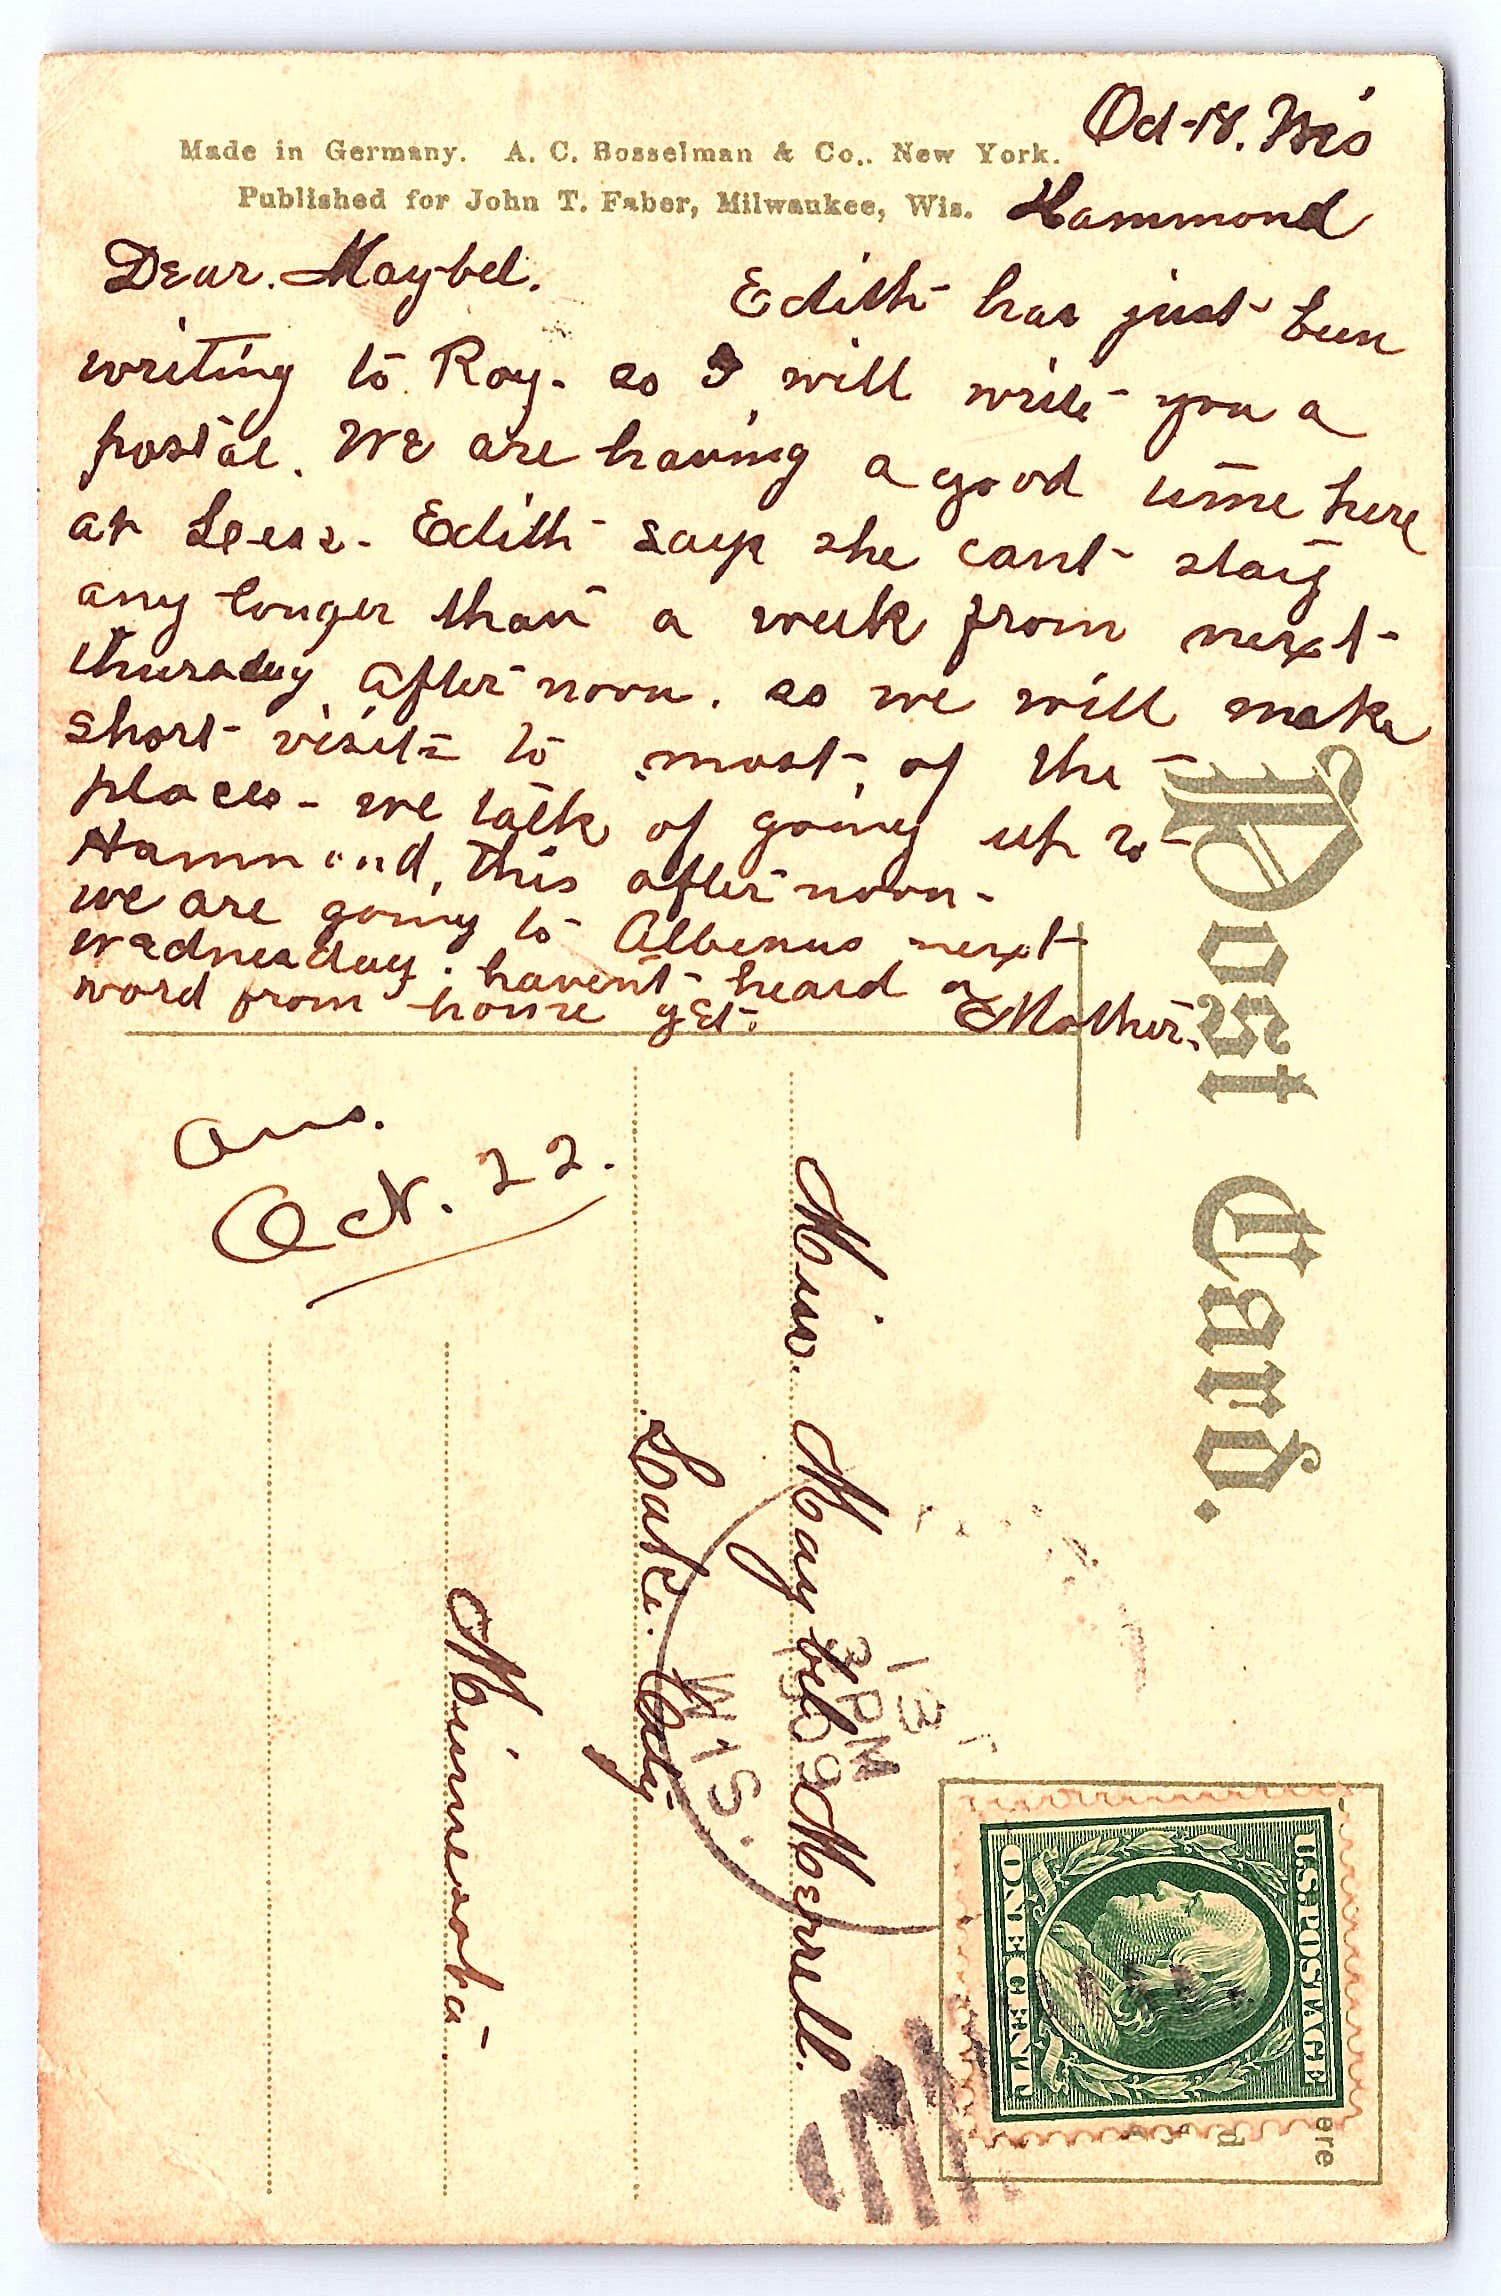 Made in Germany. A. C. Bosselman & Co., New York.
Published for John T. Faber, Milwaukee, Wis.
Oct-18. Wis
Hammond
Dear. Maybel.
Edith has just been
writing to Roy. so I will write you a
postal. We are having a good time here
at Edith says she cant stay
any longer than a week from next
thursday after noon. so we will make
short visits to most of the
places - we talk of going up to
Hammond, this after noon -
we are going to next
wednesday. havent heard a
word from home yet.
Mother.
Post Card.
Ans.
Oct. 22.
Miss. Maybel Merrell.
Lake. City.
Minnesota
3 PM
WIS.
U.S. POSTAGE
ONE CENT
ere